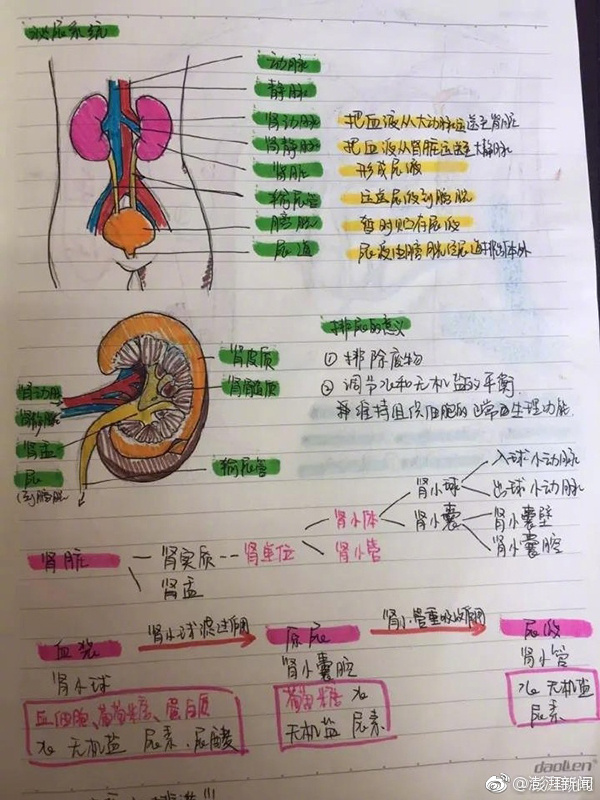 泌尿系统
动脉
静脉
肾动脉 把血液从大动脉运送至肾脏
肾静脉 把血液从肾脏运送至大静脉
肾脏 形成尿液
输尿管 运送尿液到膀胱
膀胱 暂时贮存尿液
尿道 尿液由膀胱经尿道排出体外
排尿的意义
肾皮质 ① 排除废物
肾髓质 ② 调节水和无机盐的平衡
肾动脉 维持组织细胞的正常生理功能.
肾静脉
肾盂
尿 输尿管
(到膀胱)
入球小动脉
肾小球 出球小动脉
肾小体 肾小囊 肾小囊壁
肾脏 肾实质 肾单位 肾小管 肾小囊腔
肾盂
血浆 肾小球滤过作用 原尿 肾小管重吸收作用 尿液
肾小球 肾小囊腔 肾小管
血细胞、葡萄糖、蛋白质 葡萄糖 水 水 无机盐
水 无机盐 尿素、尿酸 无机盐 尿素 尿素
daolien
@澎湃新闻